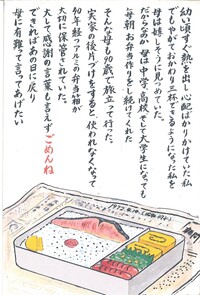 幼い頃すぐ熱を出し心配ばかりかけていた私
でもやがておかわり三杯できるようになった私を
母は嬉しそうに見つめていた
だからなのか母は中学、高校、そして大学生になっても
毎朝お弁当作りをし続けてくれた
そんな母も90歳で旅立って行った。
実家の後片づけをすると、使われなくなって
40年経つアルミの弁当箱が
大切に保管されていた。
大して感謝の言葉も言えずごめんね
できればあの日に戻り
母に有難うって言ってあげたい